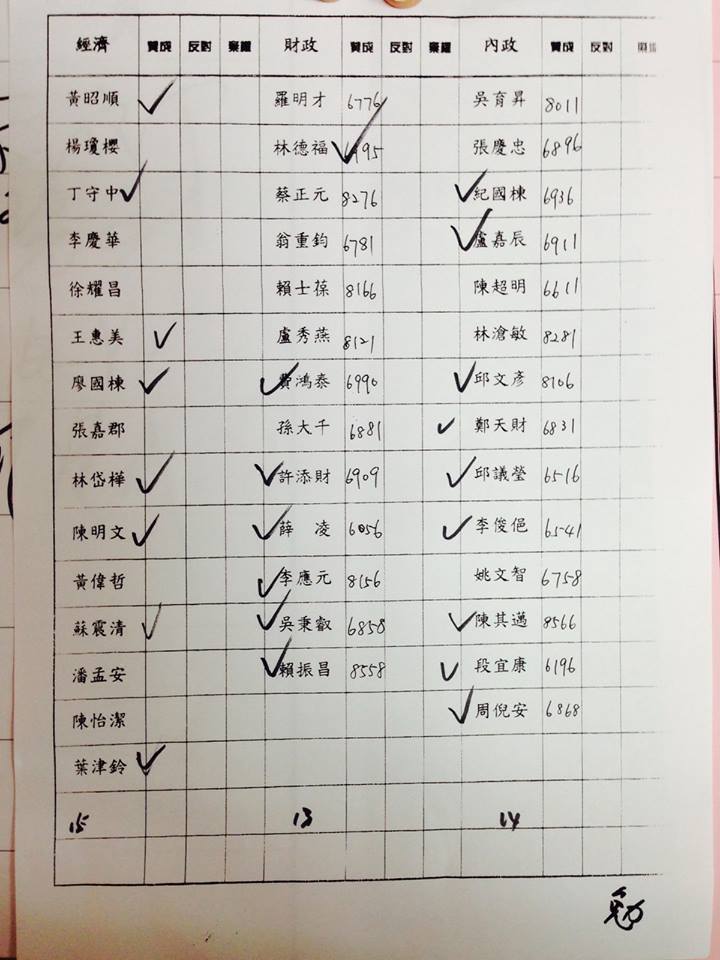 經濟 贊成 反對 棄權 財政 贊成 反對 棄權 內政 贊成 反對
黃昭順 ✓ 羅明才 6776 吳育昇 8011
楊瓊櫻 林德福 ✓ 張慶忠 6896
丁守中 ✓ 蔡正元 8276 ✓ 紀國棟 6936
李慶華 翁重鈞 6781 ✓ 盧嘉辰 6911
徐耀昌 賴士葆 8166 陳超明 6611
王惠美 ✓ 盧秀燕 8121 林滄敏 8281
廖國棟 ✓ ✓ 費鴻泰 6990 ✓ 邱文彥 8106
張嘉郡 孫大千 6881 ✓ 鄭天財 6831
林岱樺 ✓ ✓ 許添財 6909 ✓ 邱議瑩 6516
陳明文 ✓ ✓ 薛 凌 6056 ✓ 李俊俋 6541
黃偉哲 ✓ 李應元 8156 姚文智 6758
蘇震清 ✓ ✓ 吳秉叡 6858 ✓ 陳其邁 8566
潘孟安 ✓ 賴振昌 8558 ✓ 段宜康 6196
陳怡潔 ✓ 周倪安 6868
葉津鈴 ✓
15 13 14